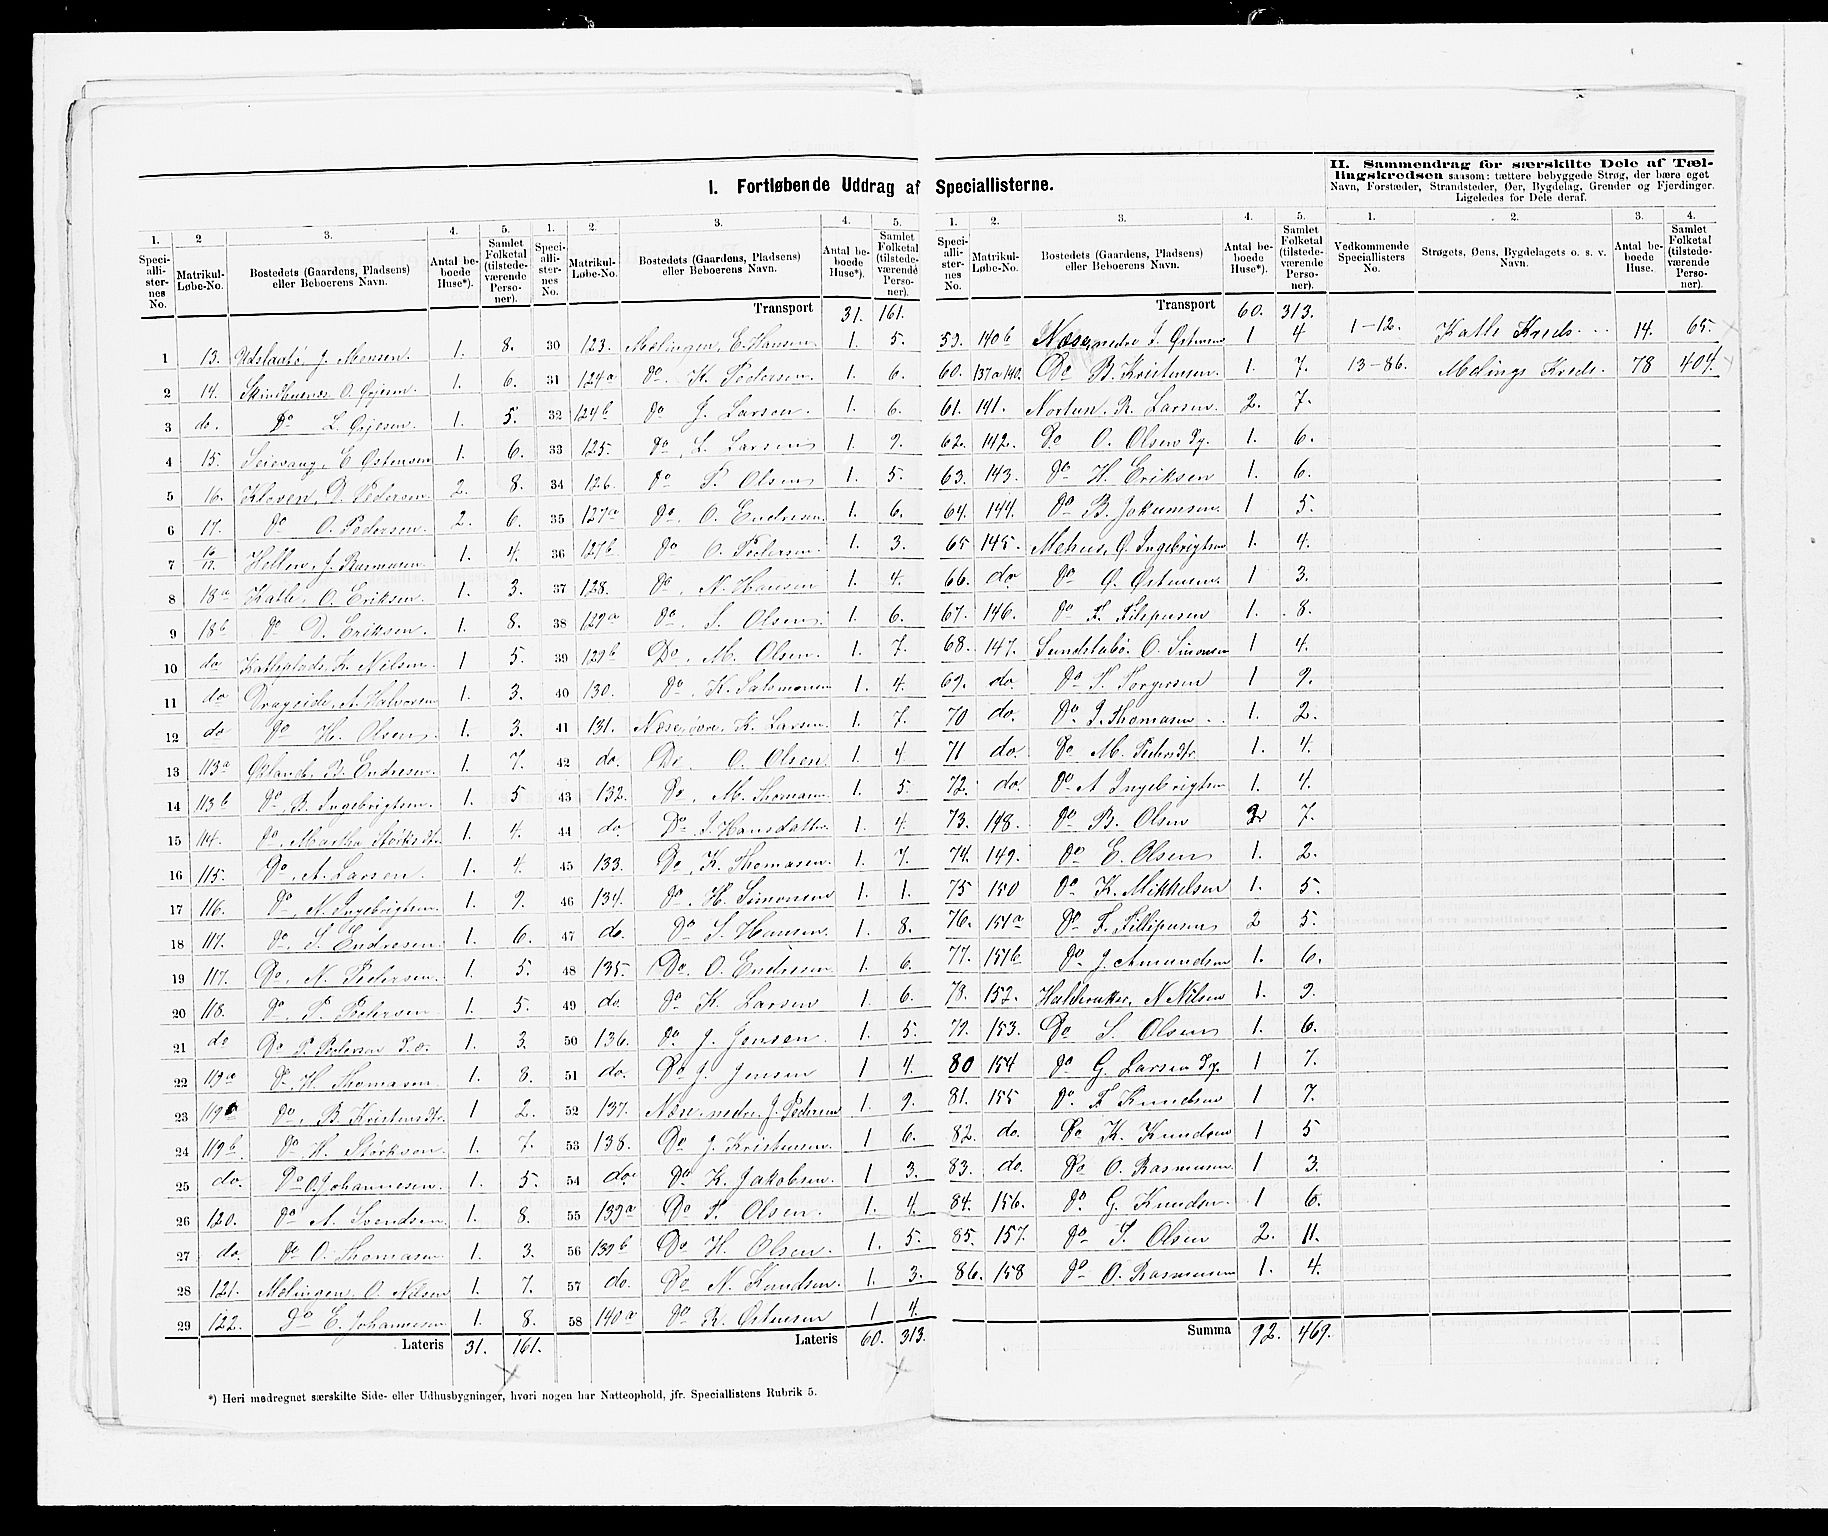 I. Fortløbende Uddrag af Speciallisterne.
II. Sammendrag for særskilte Dele af Tællingskredsen saasom: tættere bebyggede Strøg, der bære eget
Navn, Forstæder, Strandsteder, Øer, Bygdelag, Grender og Fjerdinger.
Ligeledes for Dele deraf.
1. 2 3. 4. 5.
Speciallisternes No. Matrikul-Løbe-No. Bostedets (Gaardens, Pladsens) eller Beboerens Navn. Antal beboede Huse*). Samlet Folketal (tilstedeværende Personer).
1 13. J. Monsen. 1. 8.
2 14. O. Gjesen 1. 6.
3 do. Do L. Gjesen. 1. 5.
4 15. Seievaag, E. Østensen 1. 6.
5 16. Kloven, D. Pedersen. 2. 8.
6 17. Do O. Pedersen. 2. 6.
7 J. Rasmusen 1. 4.
8 18a Katle, O. Eriksen. 1. 3.
9 18b Do D. Eriksen. 1. 8.
10 do Nilsen. 1 5.
11 do Dragside, A. Halvorsen 1. 3.
12 do Do H. Olsen. 1. 3.
13 113a Økland, B. Endresen. 1. 7.
14 113b Do, B. Ingebrigtsen. 1. 5
15 114. Do, Martha 1. 4.
16 115. Do, A. Larsen. 1. 4.
17 116. Do, N. Ingebrigtsen. 1. 9.
18 117. Do, S. Endresen. 1. 6.
19 117. Do, N. Pedersen. 1. 5.
20 118. Do, P. Pedersen 1. 5.
21 do Do P. Pedersen 1. 3.
22 119a Do, H. Thomasen. 1. 8.
23 Do, B. 1 2.
24 119b Do H. Størksen. 1. 7.
25 do. Do O. Johannesen. 1. 5.
26 120. Do A. Svendsen. 1. 8.
27 do. Do O. Thomasen. 1. 3.
28 121. Melingen, O. Nilsen 1. 7.
29 122. Do E. Johannesen 1. 8.
Lateris 31. 161.
1. 2. 3. 4. 5.
Speciallisternes No. Matrikul-Løbe-No. Bostedets (Gaardens, Pladsens) eller Beboerens Navn. Antal beboede Huse*). Samlet Folketal (tilstedeværende Personer).
Transport 31. 161.
30 123. Melingen, E. Hansen 1. 5.
31 124a Do. K. Pedersen. 1. 6.
32 124b Do J. Larsen. 1. 6.
33 125. Do L. Larsen 1 9.
34 126. Do P. Olsen 1 5.
35 127a Do. O. Endresen. 1. 6.
36 127b. Do O. Pedersen. 1. 3.
37 128. Do, N. Hansen 1 4.
38 129a Do. S. Olsen 1. 6.
39 129b Do, M. Olsen. 1. 7.
40 130. Do, K. Salomonsen 1. 4.
41 131. Næse, øvre, K. Larsen. 1. 7.
42 do. Do. O. Olsen 1. 4
43 132. Do, M. Thomasen 1. 5.
44 do. Do Hansdatter 1. 4.
45 133. Do, K. Thomasen. 1. 7.
46 134. Do, H. Simonsen 1. 1.
47 do. Do S. Hansen. 1. 8.
48 135. Do. O. Endresen 1. 6.
49 do. Do K. Larsen 1. 6.
50 136. Do. J. Jensen. 1. 5.
51 do. Do J. Jensen 1 4.
52 137. Næse, nedre, J. Pedersen 1. 9.
53 138. Do J. Kristensen. 1 6.
54 do. Do K. Jakobsen. 1 3.
55 139a Do P. Olsen. 1. 4.
56 139b Do H. Olsen. 1. 5.
57 do. Do N. Knudsen. 1. 3.
58 140a Do R. Østensen 1 4.
Lateris 60. 313.
1. 2. 3. 4. 5.
Speciallisternes No. Matrikul-Løbe-No. Bostedets (Gaardens, Pladsens) eller Beboerens Navn. Antal beboede Huse*). Samlet Folketal (tilstedeværende Personer).
Transport 60. 313.
59. 140b Næse, nedre J. Østensen 1 4
60. 137a 140. Do B. Kristensen. 1. 7.
61. 141. Nortun. R. Larsen. 2. 7.
62. 142. Do O. Olsen 1. 6.
63. 143. Do H. Eriksen 1. 6.
64. 144. Do B. Jokumsen 1 5.
65 145. Mehus, G. Ingebrigtsen 1. 4.
66. do Do Ø. Østensen. 1 3.
67. 146. Do F. Filipusen 1. 8.
68. 147. Sundstabø. O. Simonsen 1 4.
69. do. Do T. Torgersen 1 9.
70 do. Do. J. Thomasen 1. 2.
71 do. Do M. 1. 4.
72. do. Do A. Ingebrigtsen 1. 4.
73. 148. Do B. Olsen 7.
74. 149. Do E. Olsen 1. 2.
75 150 Do K. Mikkelsen 1. 5.
76. 151a Do F. Fillipusen 2 5.
77. 151b Do J. Amundsen 1. 6.
78. 152. N. Nilsen 1. 9.
79. 153. Do S. Olsen 1. 6.
80 154 Do G. Larsen 1 7.
81. 155 Do. F. Knudsen 1 7.
82. do. Do K. Knudsen 1 5
83. do. Do O. Rasmusen. 1 3.
84. 156. Do. G. Knudsen. 1 6.
85. 157. Do S. Olsen 2. 11.
86. 158 Do O. Rasmusen 1. 4.
Summa 92. 469.
1. 2. 3. 4.
Vedkommende Speciallisters No. Strøgets, Øens, Bygdelagets o. s. v. Navn. Antal beboede Huse. Samlet Folketal (tilstedeværende Personer).
1-12. Katle Kreds. 14. 65.
13-86. Melings Kreds. 78 404.
*) Heri medregnet særskilte Side- eller Udhusbygninger, hvori nogen har Natteophold, jfr. Speciallistens Rubrik 5.